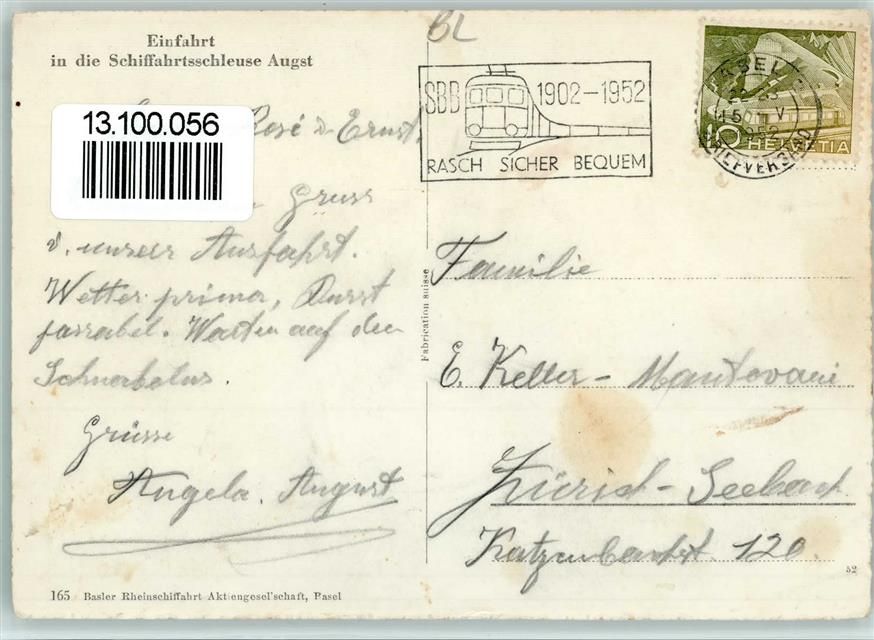 Einfahrt
in die Schiffahrtsschleuse Augst
BL
SBB 1902-1952
RASCH SICHER BEQUEM
BASEL
15 V
1952
BRIEFVERSAND
10 HELVETIA
13.100.056
Rosé & Ernst.
Gruss
v. unserer Ausfahrt.
Wetter prima, Durst
passabel. Warten auf den
Schnabelus.
Grüsse
Angela. August
Fabrication suisse
Familie
E. Keller - Mantovani
Zürich - Seebach
Katzenbachst. 120.
52
165 Basler Rheinschiffahrt Aktiengesellschaft, Basel